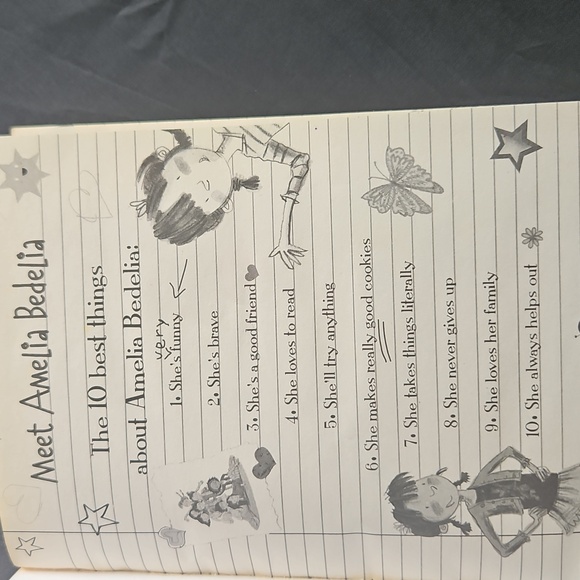 Meet Amelia Bedelia
The 10 best things
about Amelia Bedelia:
very
1. She's funny
2. She's brave
3. She's a good friend
4. She loves to read
5. She'll try anything
6. She makes really good cookies
7. She takes things literally
8. She never gives up
9. She loves her family
10. She always helps out